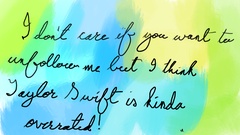 I don't care if you want to
unfollow me but I think
Taylor Swift is kinda
overrated!